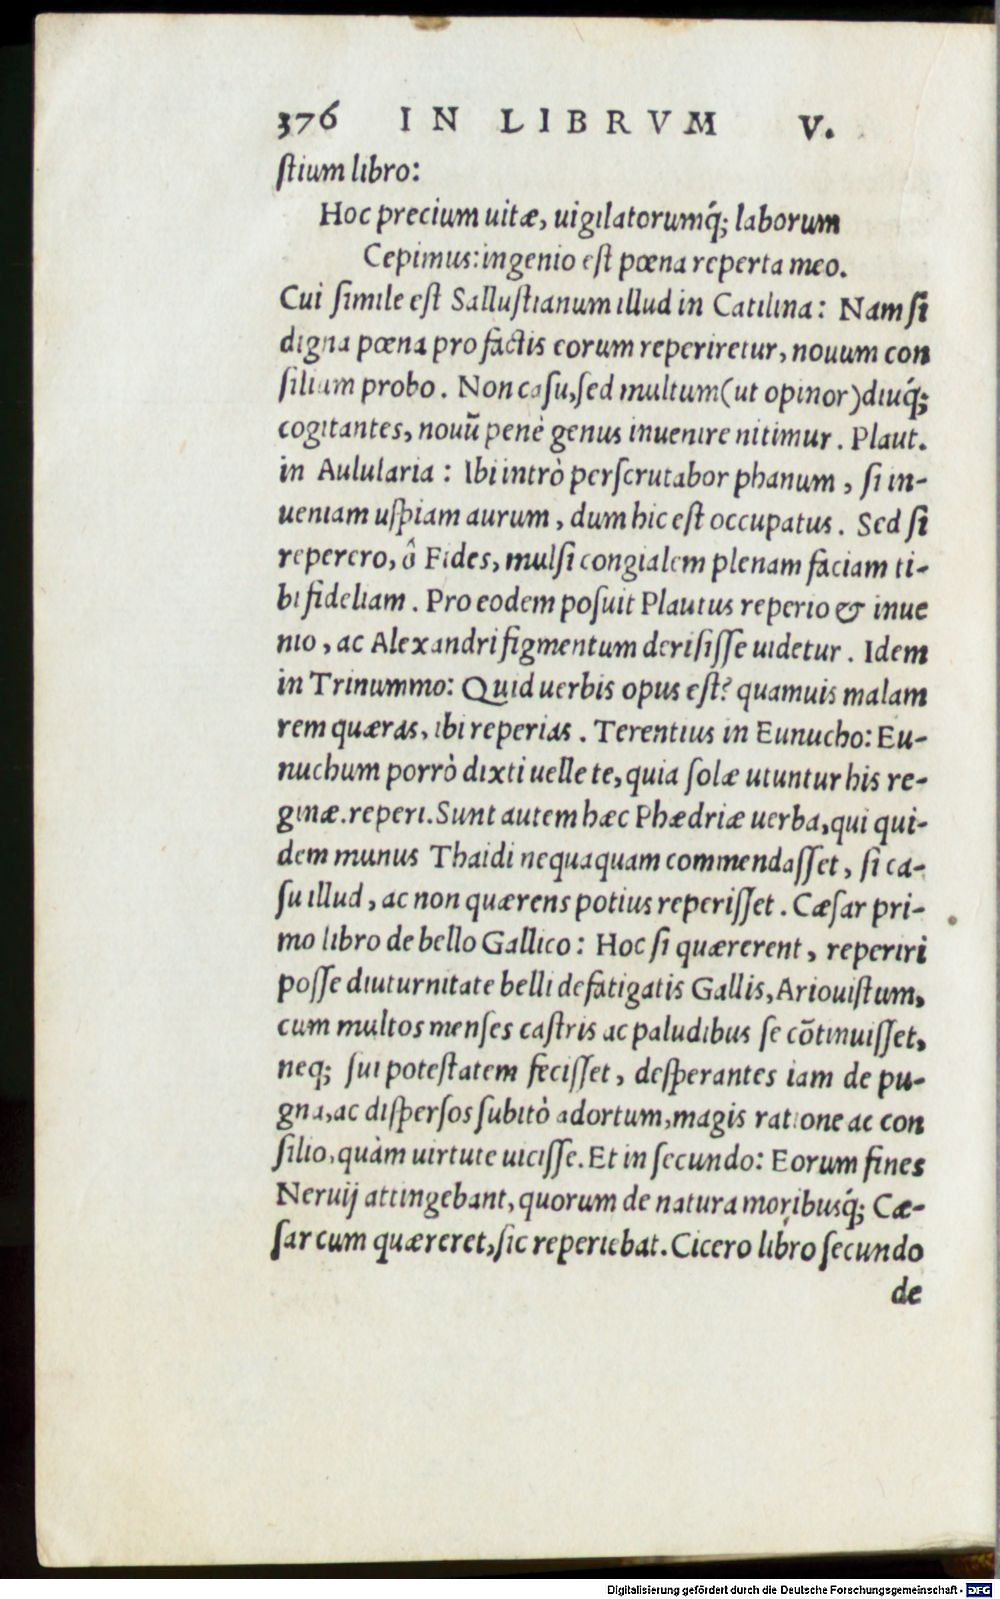 376 IN LIBRVM V.
ſtium libro:
Hoc precium uitæ, uigilatorumq́; laborum
Cepimus: ingenio eſt pœna reperta meo.
Cui ſimile eſt Salluſtianum illud in Catilina: Nam ſi
digna pœna pro factis eorum reperiretur, nouum con
ſilium probo. Non caſu, ſed multum (ut opinor) diuq́;
cogitantes, nouũ penè genus inuenire nitimur. Plaut.
in Aulularia: Ibi intrò perſcrutabor phanum, ſi in-
ueniam uſpiam aurum, dum hic eſt occupatus. Sed ſi
reperero, ô Fides, mulſi congialem plenam faciam ti-
bi fideliam. Pro eodem poſuit Plautus reperio & inue
nio, ac Alexandri figmentum deriſiſſe uidetur. Idem
in Trinummo: Quid uerbis opus eſt? quamuis malam
rem quæras, ibi reperias. Terentius in Eunucho: Eu-
nuchum porrò dixti uelle te, quia ſolæ utuntur his re-
ginæ. reperi. Sunt autem hæc Phædriæ uerba, qui qui-
dem munus Thaidi nequaquam commendaſſet, ſi ca-
ſu illud, ac non quærens potius reperiſſet. Cæſar pri-
mo libro de bello Gallico: Hoc ſi quærerent, reperiri
poſſe diuturnitate belli defatigatis Gallis, Ariouiſtum,
cum multos menſes caſtris ac paludibus ſe cõtinuiſſet,
neq; ſui poteſtatem feciſſet, deſperantes iam de pu-
gna, ac diſperſos ſubitò adortum, magis ratione ac con
ſilio, quàm uirtute uiciſſe. Et in ſecundo: Eorum fines
Neruij attingebant, quorum de natura moribusq́; Cæ-
ſar cum quæreret, ſic reperiebat. Cicero libro ſecundo
de
Digitalisierung gefördert durch die Deutsche Forschungsgemeinschaft - DFG